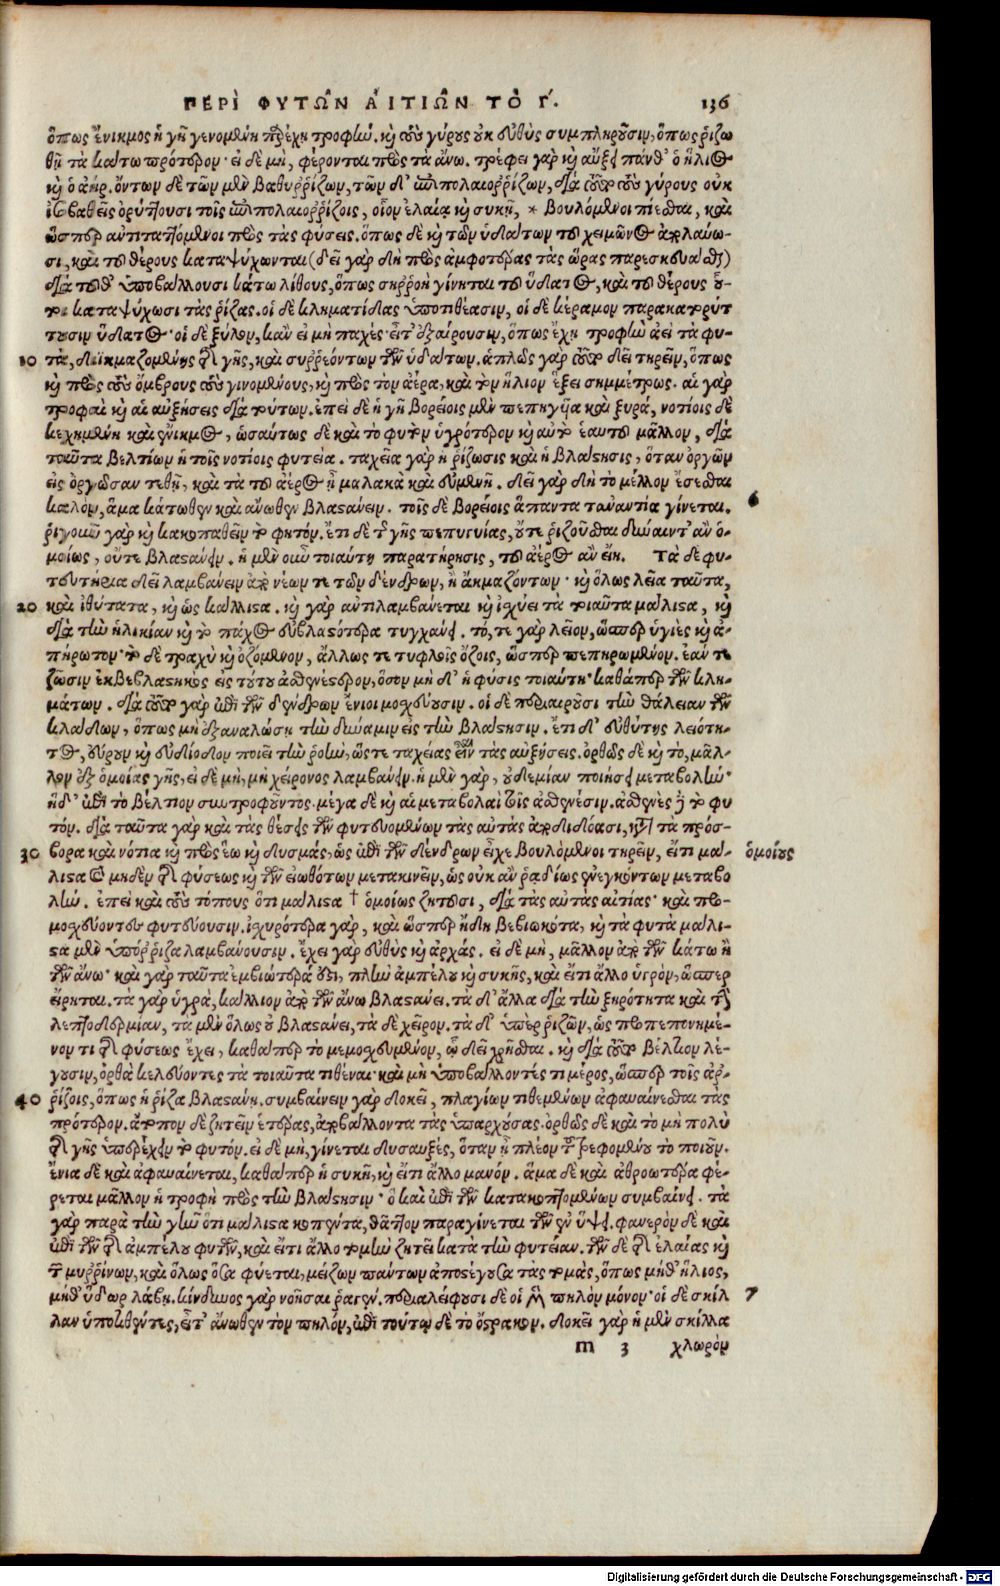 ΠΕΡῚ ΦΥΤΩ͂Ν ΑἸΤΙΩ͂Ν ΤῸ Γ. 136
ὅπως ἔνικμος ἡ γῆ γενομένη παρέχη τροφήν. καὶ τοὺς γύρους οὐκ εὐθὺς συμπληροῦσιν, ὅπως ῥιζω
θῇ τὰ κάτω πρότερον· εἰ δὲ μή, φέρονται πρὸς τὰ ἄνω. τρέφει γὰρ καὶ αὔξει πάνθ' ὁ ἥλιος
καὶ ὁ ἀήρ. ὄντων δὲ τῶν μὲν βαθυῤῥίζων, τῶν δ' ἐπιπολαιοῤῥίζων, διὰ τοῦτο τοὺς γύρους οὐκ
ἰσοβαθεῖς ὀρύττουσι τοῖς ἐπιπολαιοῤῥίζοις, οἷον ἐλαίᾳ καὶ συκῇ, * βουλόμενοι πιέσαι, καὶ
ὥσπερ ἀντιταττόμενοι πρὸς τὰς φύσεις. ὅπως δὲ καὶ τῶν ὑδάτων τοῦ χειμῶνος ἀπολαύω-
σι, καὶ τοῦ θέρους καταψύχωνται (δεῖ γὰρ δὴ πρὸς ἀμφοτέρας τὰς ὥρας παρεσκευάσθαι)
διὰ τοῦθ' ὑποβάλλουσι κάτω λίθους, ὅπως συῤῥοὴ γίνηται τοῦ ὕδατος, καὶ τοῦ θέρους οὗ-
τοι καταψύχωσι τὰς ῥίζας. οἱ δὲ κληματίδας ὑποτιθέασιν, οἱ δὲ κέραμον παρακατορύτ
τουσιν ὕδατος· οἱ δὲ ξύλον, κἂν εἰ μὴ παχὺς εἶτ' ἐξαίρουσιν, ὅπως ἔχῃ τροφὴν ἀεὶ τὰ φυ-
10 τά, διϊκμαζομένης τῆς γῆς, καὶ συῤῥεόντων τῶν ὑδάτων. ἁπλῶς γὰρ τοῦτο δεῖ τηρεῖν, ὅπως
καὶ πρὸς τοὺς ὄμβρους τοὺς γινομένους, καὶ πρὸς τὸν ἀέρα, καὶ τὸν ἥλιον ἕξει συμμέτρως. αἱ γὰρ
τροφαὶ καὶ αἱ αὐξήσεις διὰ τούτων. ἐπεὶ δὲ ἡ γῆ βορείοις μὲν πεπηγυῖα καὶ ξηρά, νοτίοις δὲ
κεχυμένη καὶ ἔνικμος, ὡσαύτως δὲ καὶ τὸ φυτὸν ὑγρότερον καὶ αὐτὸ ἑαυτοῦ μᾶλλον, διὰ
ταῦτα βελτίων ἡ τοῖς νοτίοις φυτεία. ταχεῖα γὰρ ἡ ῥίζωσις καὶ ἡ βλάστησις, ὅταν ὀργῶν
εἰς ὀργῶσαν τεθῇ, καὶ τὰ τοῦ ἀέρος ᾖ μαλακὰ καὶ εὐμενῆ. δεῖ γὰρ δὴ τὸ μέλλον ἔσεσθαι 6
καλόν, ἅμα κάτωθεν καὶ ἄνωθεν βλαστάνειν. τοῖς δὲ βορείοις ἅπαντα τἀναντία γίνεται.
ῥιγοῦν γὰρ καὶ κακοπαθεῖν τὸ φυτόν. ἔτι δὲ τῆς γῆς πεπηγυίας, οὔτε ῥιζοῦσθαι δύναιντ' ἂν ὁ-
μοίως, οὔτε βλαστάνειν. ἡ μὲν οὖν τοιαύτη παρατήρησις, τοῦ ἀέρος ἂν εἴη. Τὰ δὲ φυ-
τευτήρια δεῖ λαμβάνειν ἀπὸ νέων τε τῶν δένδρων, ἢ ἀκμαζόντων· καὶ ὅλως λεῖα ταῦτα,
20 καὶ ἰθύτατα, καὶ ὡς κάλλιστα. καὶ γὰρ ἀντιλαμβάνεται καὶ ἰσχύει τὰ τοιαῦτα μάλιστα, καὶ
διὰ τὴν ἡλικίαν καὶ τὸ πάχος εὐβλαστότερα τυγχάνει. τό, τε γὰρ λεῖον, ὥσπερ ὑγιὲς καὶ ἀ-
πήρωτον· τὸ δὲ τραχὺ καὶ ὀζόμενον, ἄλλως τε τυφλοῖς ὄζοις, ὥσπερ πεπηρωμένον. ἐὰν τε
ζῶσιν ἐκβεβλαστηκὸς εἰς τούτου ἀσθενέστερον, ὅσον μὴ δι' ἡ φύσις τοιαύτη· καθάπερ τῶν κλη-
μάτων. διὰ τοῦτο γὰρ ἐπὶ τῶν δένδρων ἔνιοι μοσχεύουσιν. οἱ δὲ περιαιροῦσι τὴν θάλειαν τῶν
κλάδων, ὅπως μὴ ἐξαναλώσῃ τὴν δύναμιν εἰς τὴν βλάστησιν. ἔτι δ' εὐθύτης λειότη-
τος, εὔρουν καὶ εὐδίοδον ποιεῖ τὴν ῥοήν, ὥστε ταχείας εἶναι τὰς αὐξήσεις. ὀρθῶς δὲ καὶ τὸ, μάλ-
λον ἐξ ὁμοίας γῆς, εἰ δὲ μή, μὴ χείρονος λαμβάνειν. ἡ μὲν γάρ, οὐδεμίαν ποιήσει μεταβολήν·
ἡ δ' ἐπὶ τὸ βέλτιον συντροφοῦντος. μέγα δὲ καὶ αἱ μεταβολαὶ τοῖς ἀσθενέσιν. ἀσθενὲς δὲ τὸ φυ
τόν. διὰ ταῦτα γὰρ καὶ τὰς θέσεις τῶν φυτευομένων τὰς αὐτὰς ἀποδιδόασι, κατὰ τὰ πρόσ-
30 βορα καὶ νότια καὶ πρὸς ἕω καὶ δυσμάς, ὡς ἐπὶ τῶν δένδρων εἶχε βουλόμενοι τηρεῖν, εἴτι μά- ὁμοίους
λιστα τὸ μηδὲν τῆς φύσεως καὶ τῶν εἰωθότων μετακινεῖν, ὡς οὐκ ἂν ῥᾳδίως ἐνεγκόντων μεταβο
λήν. ἐπεὶ καὶ τοὺς τόπους ὅτι μάλιστα † ὁμοίως ζητοῦσι, διὰ τὰς αὐτὰς αἰτίας· καὶ προ-
μοσχεύοντες φυτεύουσιν. ἰσχυρότερα γάρ, καὶ ὥσπερ ἤδη βεβιωκότα, καὶ τὰ φυτὰ μάλι-
στα μὲν ὑπόῤῥιζα λαμβάνουσιν. ἔχει γὰρ εὐθὺς καὶ ἀρχάς. εἰ δὲ μή, μᾶλλον ἀπὸ τῶν κάτω ἢ
τῶν ἄνω· καὶ γὰρ ταῦτα ἐμβιώτερά ἐστι, πλὴν ἀμπέλου καὶ συκῆς, καὶ εἴτι ἄλλο ὑγρόν, ὥσπερ
εἴρηται. τὰ γὰρ ὑγρά, κάλλιον ἀπὸ τῶν ἄνω βλαστάνει. τὰ δ' ἄλλα διὰ τὴν ξηρότητα καὶ τὴν
λεπτοδερμίαν, τὰ μὲν ὅλως οὐ βλαστάνει, τὰ δὲ χεῖρον. τὰ δ' ὑπὲρ ῥιζῶν, ὡς προπεπονημέ-
νον τι τῆς φύσεως ἔχει, καθάπερ τὸ μεμοσχευμένον, ᾧ δεῖ χρῆσθαι. καὶ διὰ τοῦτο βέλτιον λέ-
γουσιν, ὀρθὰ κελεύοντες τὰ τοιαῦτα τιθέναι· καὶ μὴ ὑποβάλλοντές τι μέρος, ὥσπερ τοῖς ἀῤ-
40 ῥίζοις, ὅπως ἡ ῥίζα βλαστάνῃ. συμβαίνειν γὰρ δοκεῖ, πλαγίων τιθεμένων ἀφαυαίνεσθαι τὰς
πρότερον. ἄτοπον δὲ ζητεῖν ἑτέρας, ἀποβάλλοντα τὰς ὑπαρχούσας. ὀρθῶς δὲ καὶ τὸ μὴ πολὺ
τῆς γῆς ὑπερέχειν τὸ φυτόν. εἰ δὲ μή, γίνεται δυσαυξές, ὅταν ᾖ πλέον τὸ τρεφομένου τὸ ποιοῦν.
ἔνια δὲ καὶ ἀφαυαίνεται, καθάπερ ἡ συκῆ, καὶ εἴτι ἄλλο μανόν. ἅμα δὲ καὶ ἀθροωτέρα φέ-
ρεται μᾶλλον ἡ τροφὴ πρὸς τὴν βλάστησιν· ὃ καὶ ἐπὶ τῶν κατακοπτομένων συμβαίνει. τὰ
γὰρ παρὰ τὴν γῆν ὅτι μάλιστα κοπέντα, θᾶττον παραγίνεται τῶν ἐν ὕψει. φανερὸν δὲ καὶ
ἐπὶ τῶν τῆς ἀμπέλου φυτῶν, καὶ εἴτι ἄλλο τομὴν ζητεῖ κατὰ τὴν φυτείαν. τῶν δὲ τῆς ἐλαίας καὶ
τῶν μυῤῥίνων, καὶ ὅλως ὅσα φύεται, μείζων πάντων ἀποστέγουσα τὰς τομάς, ὅπως μήθ' ἥλιος,
μήθ' ὕδωρ λάβῃ. κίνδυνος γὰρ νοῆσαι ῥαγέν. περιαλείφουσι δὲ οἱ μὲν πηλὸν μόνον· οἱ δὲ σκίλ 7
λαν ὑποθέντες, εἶτ' ἄνωθεν τὸν πηλόν, ἐπὶ τούτῳ δὲ τὸ ὄστρακον. δοκεῖ γὰρ ἡ μὲν σκίλλα
m 3 χλωρὸν
Digitalisierung gefördert durch die Deutsche Forschungsgemeinschaft - DFG